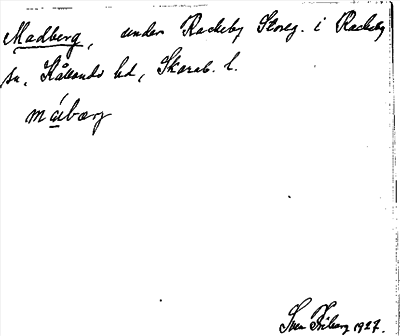 Madberg, under Rackeby Storeg. i Rackeby
sn, Kållands hd, Skarab. l.
máibærg
Sven Friberg 1927.